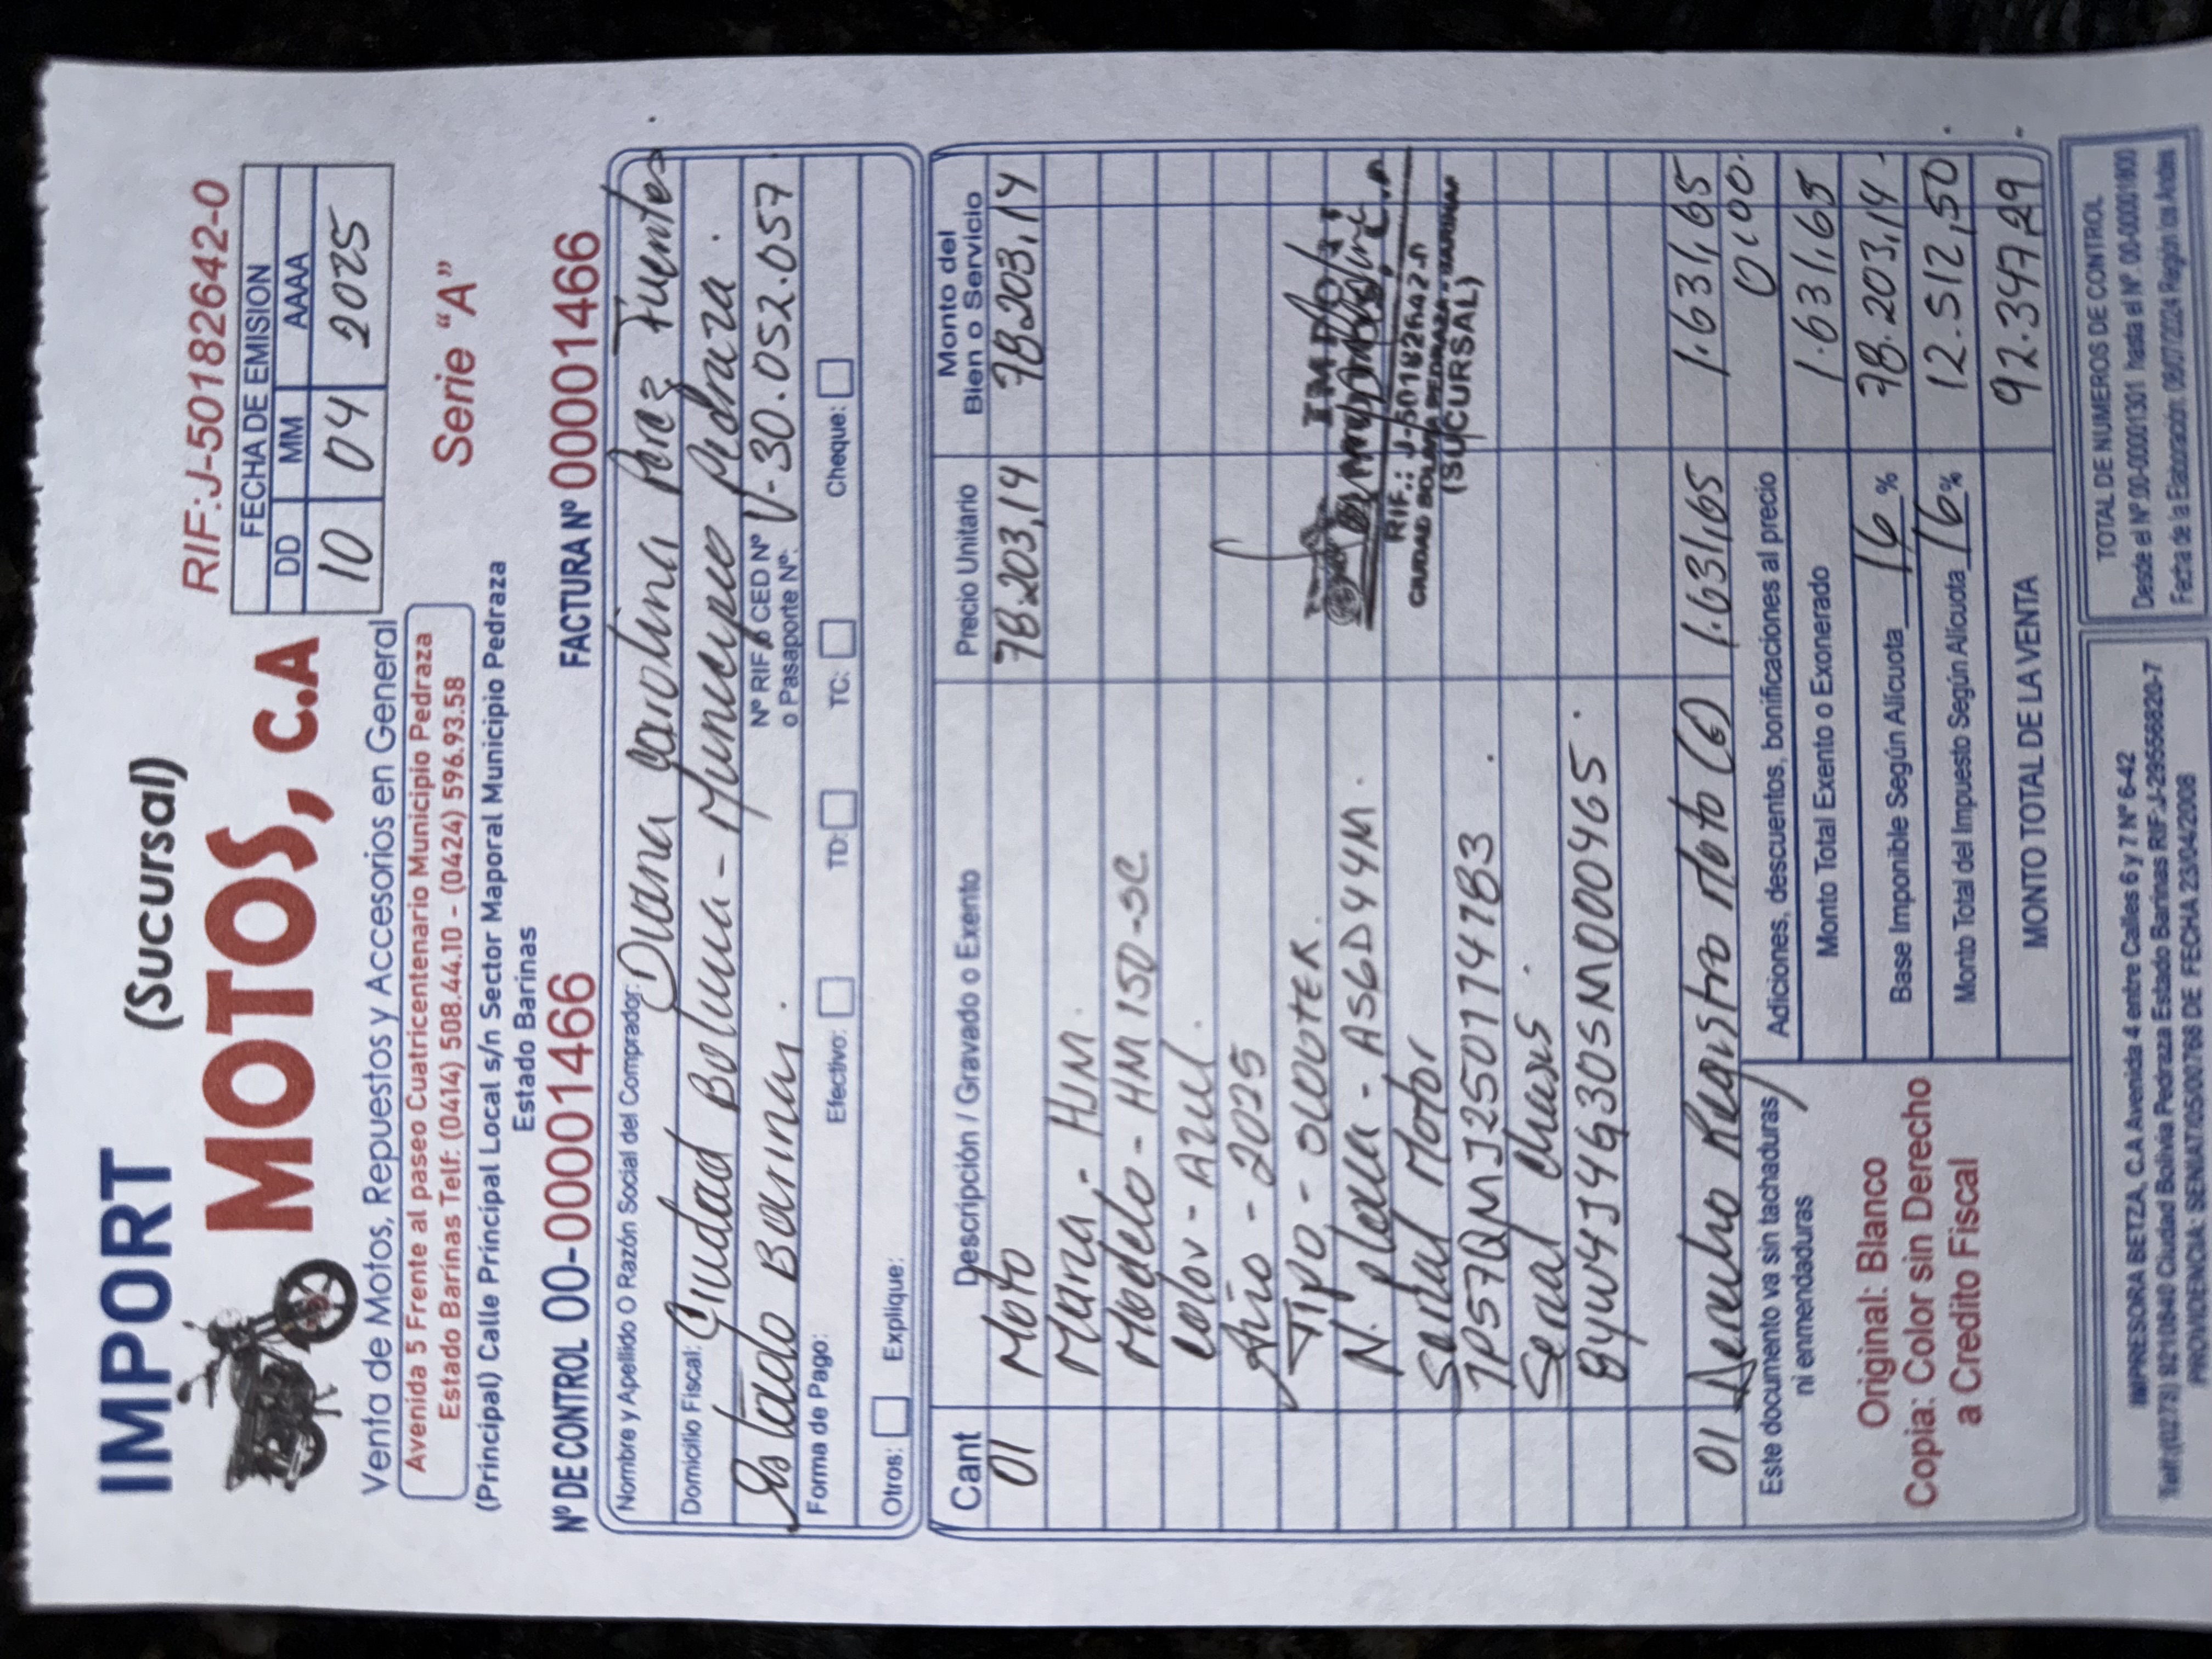 IMPORT (Sucursal)
MOTOS, C.A
RIF:J-50182642-0
FECHA DE EMISION
DD MM AAAA
10 04 2025
Venta de Motos, Repuestos y Accesorios en General
Avenida 5 Frente al paseo Cuatricentenario Municipio Pedraza
Estado Barinas Telf: (0414) 508.44.10 - (0424) 596.93.58
Serie "A"
(Principal) Calle Principal Local s/n Sector Maporal Municipio Pedraza
Estado Barinas
Nº DE CONTROL 00-00001466 FACTURA Nº 00001466
Nombre y Apellido O Razón Social del Comprador: Diana Carolina Perez Fuentes
Domicilio Fiscal: Ciudad Bolivia - Municipio Pedraza.
Estado Barinas. Nº RIF ó CED Nº o Pasaporte Nº: V-30.052.057
Forma de Pago: Efectivo: TD: TC: Cheque:
Otros: Explique:
Cant Descripción / Gravado o Exento Precio Unitario Monto del Bien o Servicio
01 Moto 78.203,14 78.203,14
Marca - HJM.
Modelo - HM 150-3C
Color - Azul.
Año - 2025
Tipo - SCOOTER.
N. placa - AS6D44M.
Serial Motor
1P57QMJ25017478 3.
Serial Chasis.
8YW4J4G30SM000465.
IMPORT
RIF.: J-50182642-0
CIUDAD BOLIVIA PEDRAZA - BARINAS
(SUCURSAL)
01 Derecho Registro Moto (E) 1.631,65 1.631,65
Este documento va sin tachaduras
ni enmendaduras
Adiciones, descuentos, bonificaciones al precio 0,00.
Monto Total Exento o Exonerado 1.631,65
Base Imponible Según Alícuota 16 % 78.203,14.
Monto Total del Impuesto Según Alicuota 16 % 12.512,50.
MONTO TOTAL DE LA VENTA 92.347,29.
Original: Blanco
Copia: Color sin Derecho
a Credito Fiscal
IMPRESORA BETZA, C.A Avenida 4 entre Calles 6 y 7 Nº 6-42
Telf:(0273) 9210940 Ciudad Bolivia Pedraza Estado Barinas RIF:J-29556820-7
PROVIDENCIA: SENIAT/05/00768 DE FECHA 23/04/2008
TOTAL DE NUMEROS DE CONTROL
Desde el Nº 00-00001301 hasta el Nº. 00-00001800
Fecha de la Elaboración: 08/07/2024 Región los Andes